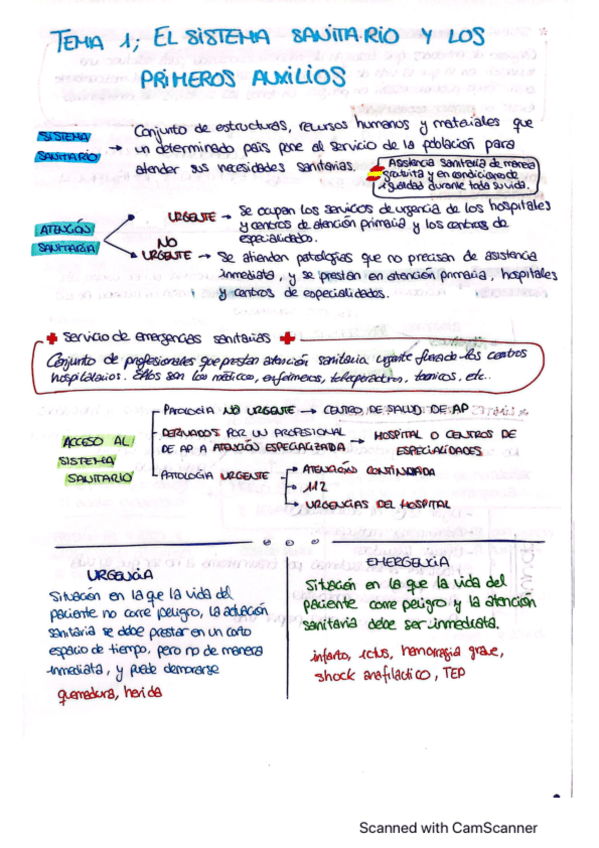 TEMA 1; EL SISTEMA SANITARIO Y LOS
PRIMEROS AUXILIOS
SISTEMA
SANITARIO
→ Conjunto de estructuras, recursos humanos y materiales que
un determinado país pone al servicio de la población para
atender sus necesidades sanitarias.
Asistencia sanitaria de manera
gratuita y en condiciones de
igualdad durante toda su vida.
ATENCIÓN
SANITARIA
URGENTE → Se ocupan los servicios de urgencia de los hospitales
y centros de atención primaria y los centros de
especialidades.
NO
URGENTE → Se atienden patologías que no precisan de asistencia
inmediata, y se prestan en atención primaria, hospitales
y centros de especialidades.
Servicio de emergencias sanitarias
Conjunto de profesionales que prestan atención sanitaria urgente fuera de los centros
hospitalarios. Ellos son los médicos, enfermeros, teleoperadores, técnicos, etc..
ACCESO AL
SISTEMA
SANITARIO
PATOLOGIA NO URGENTE → CENTRO DE SALUD DE AP
DERIVADOS POR UN PROFESIONAL
DE AP A ATENCIÓN ESPECIALIZADA → HOSPITAL O CENTROS DE
ESPECIALIDADES
PATOLOGIA URGENTE → ATENCIÓN CONTINUADA
→ 112
→ URGENCIAS DEL HOSPITAL
URGENCIA
Situación en la que la vida del
paciente no corre peligro, la actuación
sanitaria se debe prestar en un corto
espacio de tiempo, pero no de manera
inmediata, y puede demorarse
quemadura, herida
EMERGENCIA
Situación en la que la vida del
paciente corre peligro y la atención
sanitaria debe ser inmediata.
infarto, ictus, hemorragia grave,
shock anafiláctico, TEP
Scanned with CamScanner